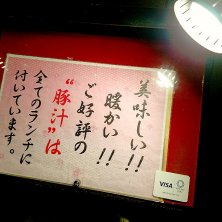 美味しい!!
暖かい!!
ご好評の
“豚汁”は
全てのランチに
付いています。
VISA